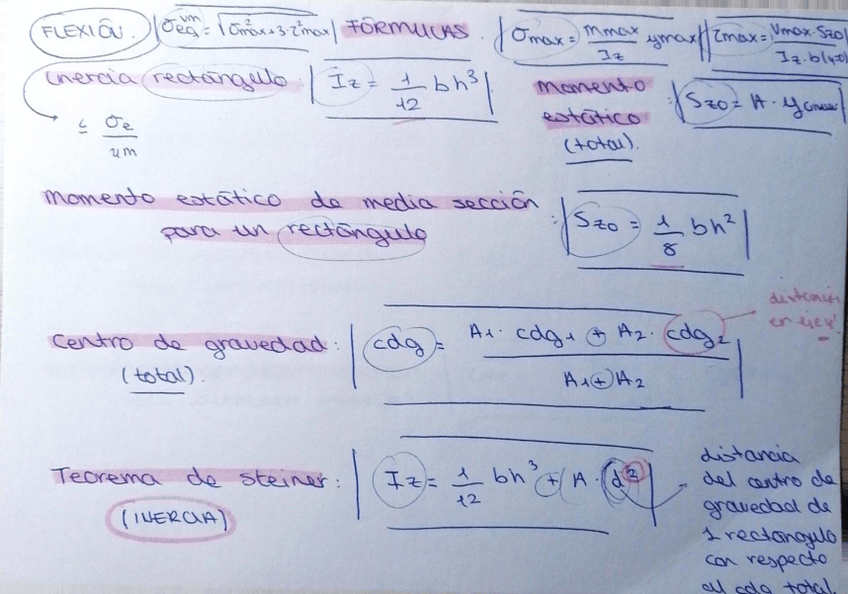 FLEXIÓN. | σeq^vm = √σ²max+3·τ²max | FÓRMULAS. | σmax = Mmax/Iz ymax | | τmax = Vmax·Szo/Iz·b(y=0)
inercia rectángulo: | Iz = 1/12 bh³ |
≤ σe/γm
momento estático (total). : | Szo = A · |
momento estático de media sección
para un rectángulo : | Szo = 1/8 bh² |
distancia
en eje y
Centro de gravedad: (total). | cdg = A1· cdg1 + A2· cdg2 / A1+A2 |
Teorema de steiner: | Iz = 1/12 bh³ + (A · d²) |
(INERCIA)
distancia
del centro de
gravedad de
1 rectángulo
con respecto
al cdg total.